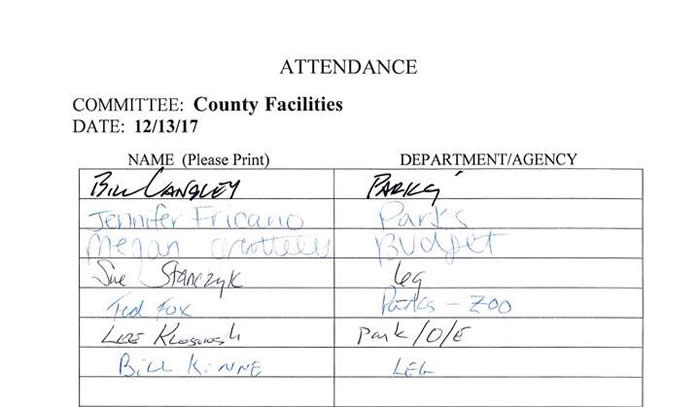 ATTENDANCE
COMMITTEE: County Facilities
DATE: 12/13/17
NAME (Please Print) DEPARTMENT/AGENCY
Bill Langley Parks
Jennifer Fricano Parks
Megan Budget
Sue Stanczyk Leg
Ted Fox Parks - Zoo
Lee Park/O/E
Bill Kinne Leg